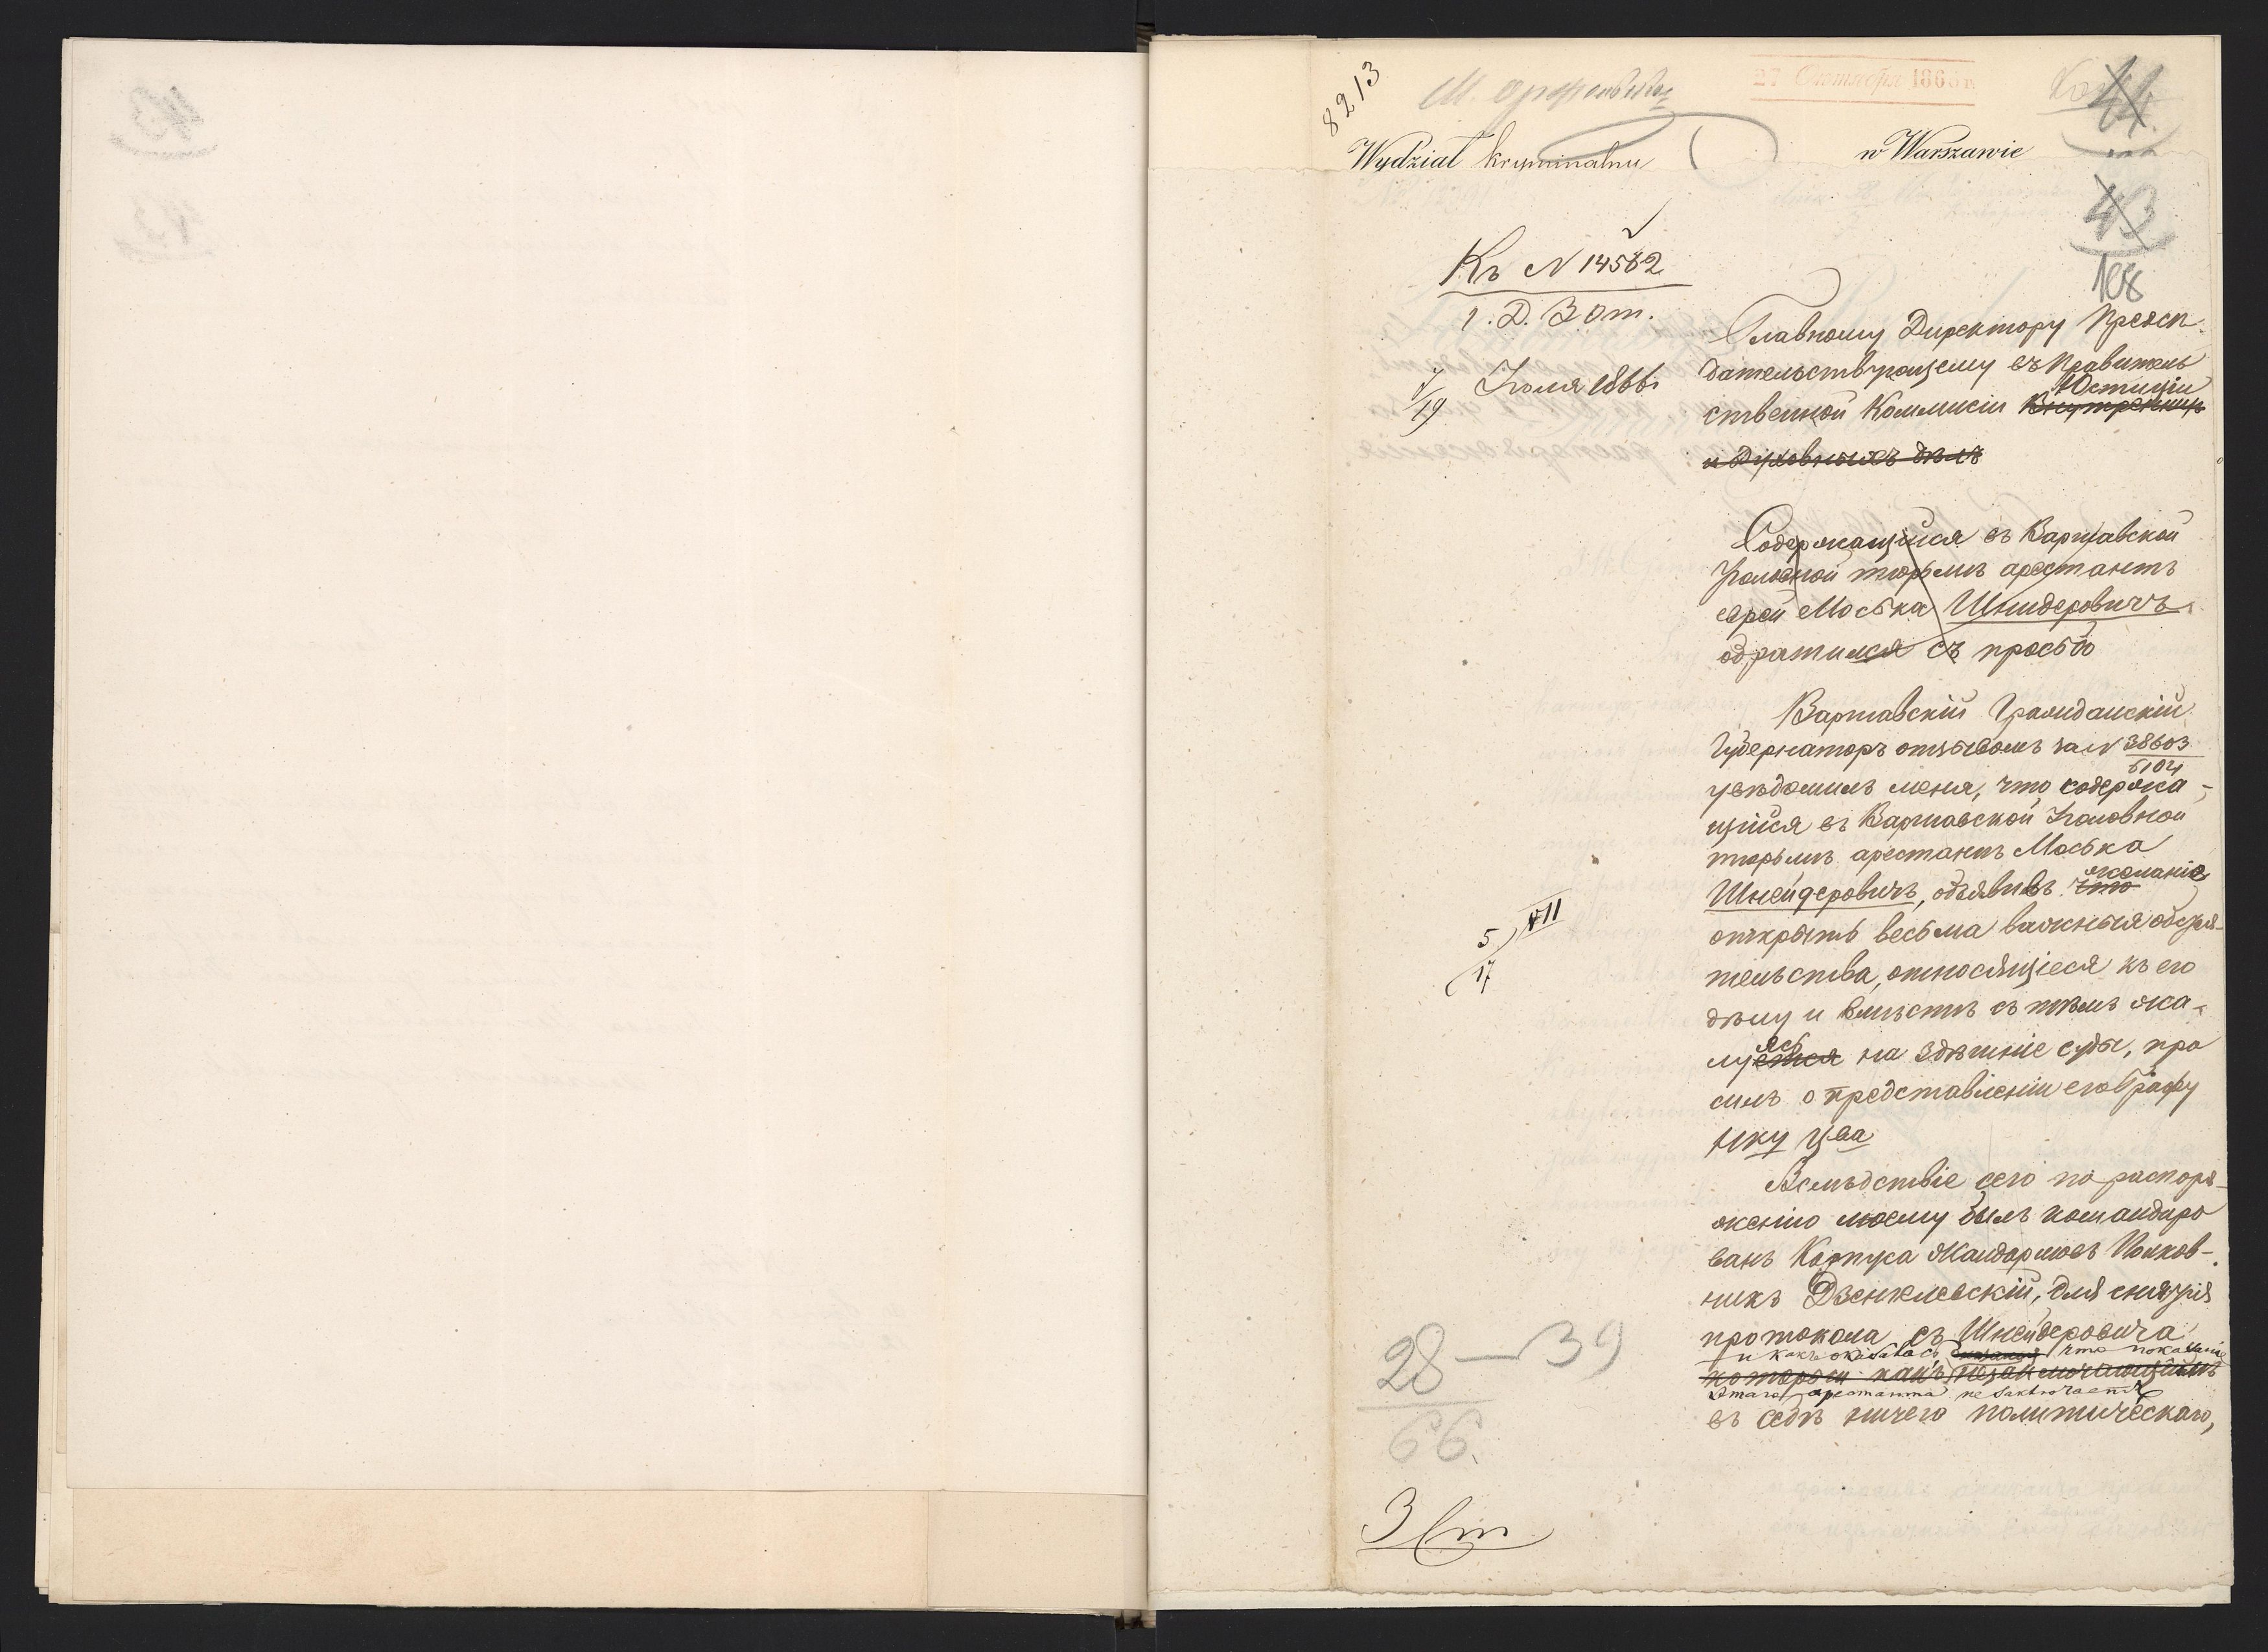 8213
27 Октября 1866 г.
44
Wydział kryminalny
w Warszawie
43
108
Къ N 14582
1. Д. 3 От.
7/19 Іюля 1866
Главному Директору Предсѣ-
дательствующему въ Правитель
ственной Коммисіи Внутреннихъ Юстиціи
и Духовныхъ дѣлъ
Содержащійся въ Варшавской
Уголовной тюрьмѣ арестантъ
еврей Моська Шнидеровичъ
обратился съ просьбо
Варшавскій Гражданскій
Губернаторъ отзывомъ за N 38603
5104
увѣдомилъ меня, что содержа-
щійся въ Варшавской Уголовной
тюрьмѣ арестантъ Моська
Шнейдеровичъ, объявивъ что желаніе
открыть весьма важныя обстоя-
тельства, относящіеся къ его
дѣлу и вмѣстѣ съ тѣмъ жа-
луется ясь на здѣшніе суды, про
силъ о представленіи его Графу
Нку Ц̲ва
Вслѣдствіе сего по распоря-
женію моему былъ командиро
ванъ Корпуса Жандармовъ Полков-
никъ Дзенкевскій, для снятія
протокола съ Шнейдеровича
и какъ оказалось что показаніе
котораго какъ незаключающимъ
этаго арестанта не заключаетъ
въ себѣ ничего политическаго,
5/17 VII
28 — 39
66
3 Ст